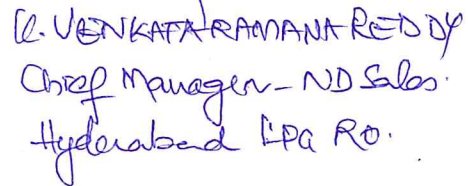 K. VENKATA RAMANA REDDY
Chief Manager - ND Sales.
Hyderabad LPG RO.